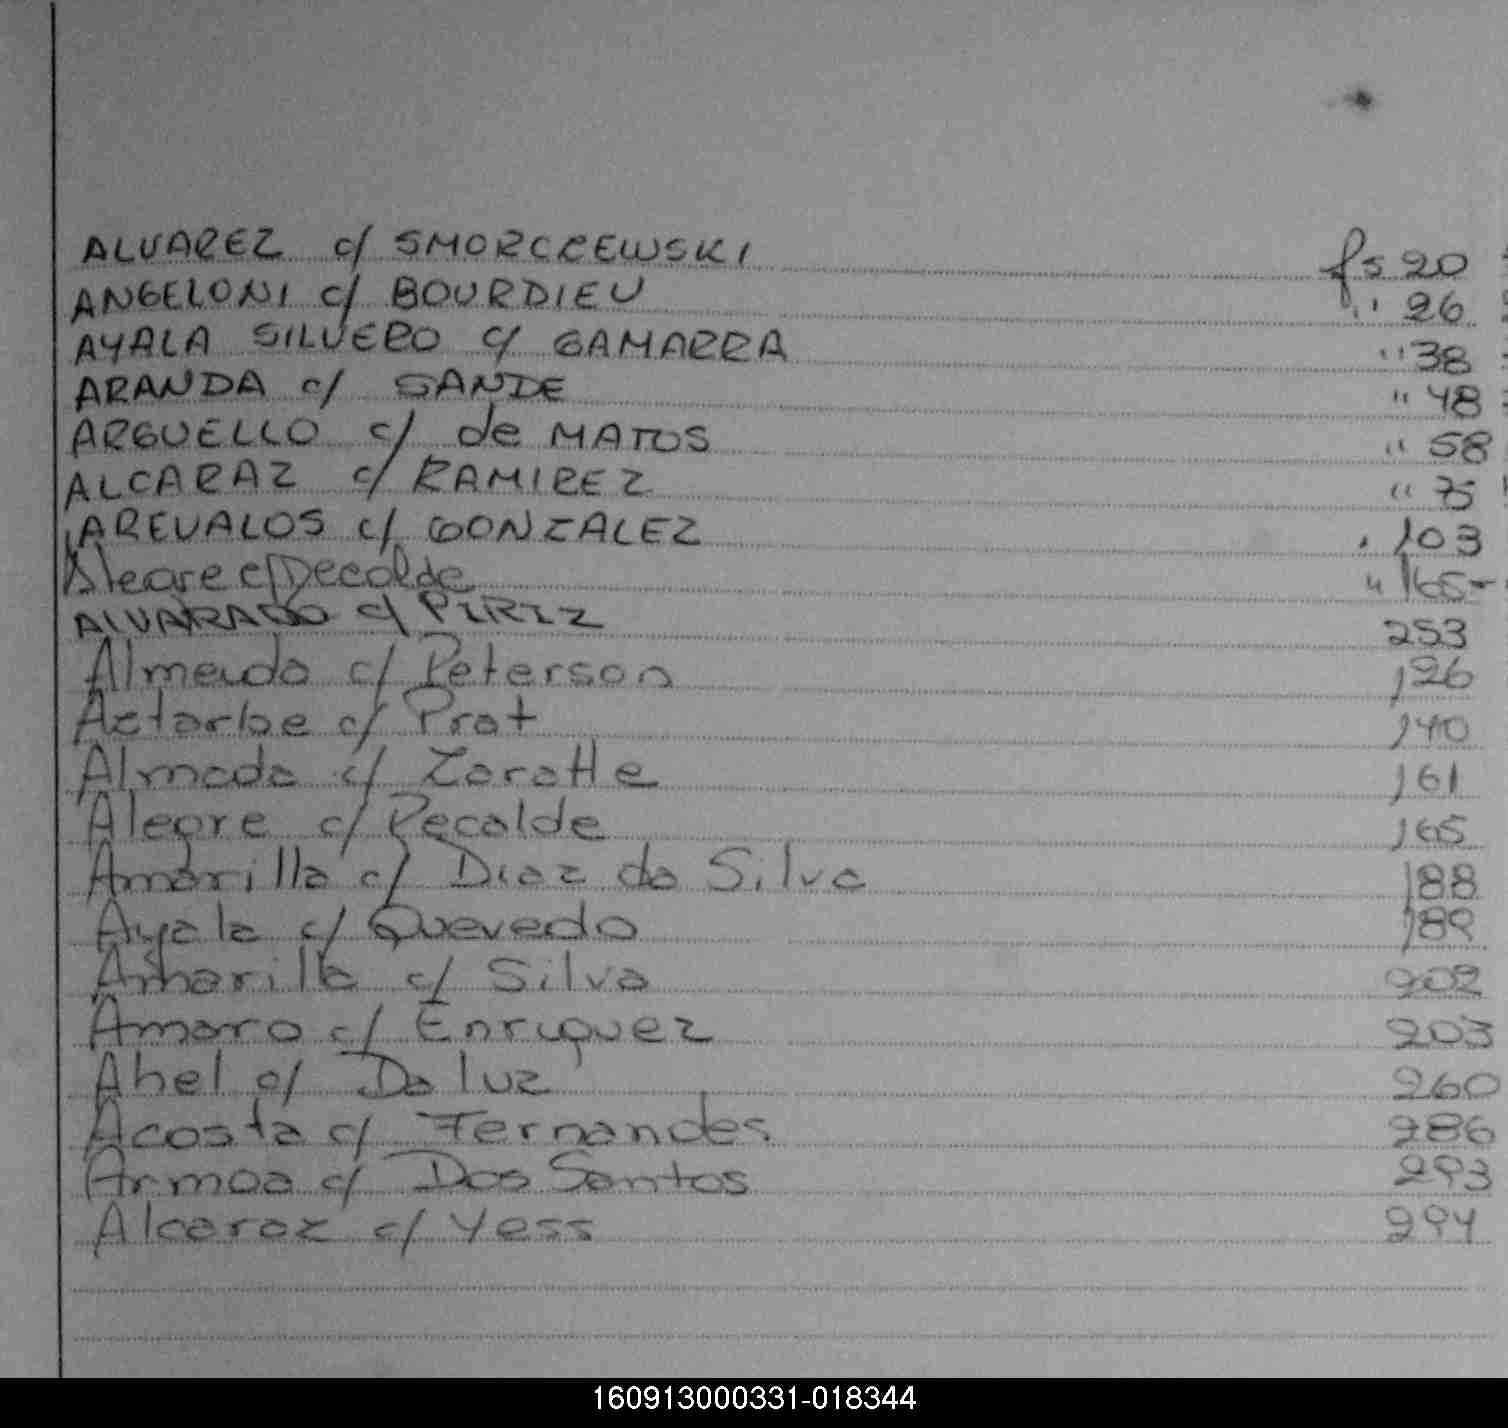 ALVAREZ c/ SMORCZEWSKI fs 20
ANGELONI c/ BOURDIEU " 26
AYALA SILVERO c/ GAMARRA " 38
ARANDA c/ SANDE " 48
ARGUELLO c/ de MATOS " 58
ALCARAZ c/ RAMIREZ " 75
AREVALOS c/ GONZALEZ , 103
Alegre c/ Decalde " 165-
ALVARADO c/ PIRIZ 253
Almeida c/ Peterson 126
Aztarbe c/ Prat 140
Almada c/ Zaratte 161
Alegre c/ Recalde 165
Amarilla c/ Diaz da Silva 188
Ayala c/ Quevedo 189
Amarilla c/ Silva 202
Amaro c/ Enriquez 203
Abel c/ Da luz 260
Acosta c/ Fernandes 286
Armoa c/ Dos Santos 293
Alcaraz c/ Yess 294
160913000331-018344